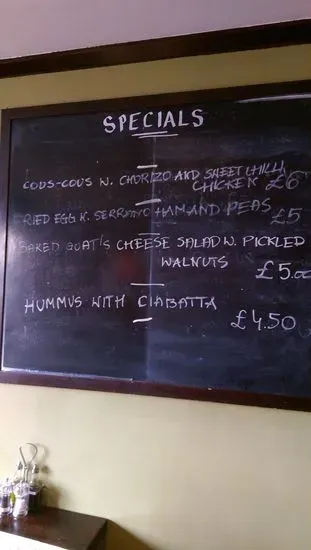 SPECIALS
COUS-COUS W. CHORIZO AND SWEET CHILLI
CHICKEN £6
FRIED EGG W. SERRANO HAM AND PEAS £5
BAKED GOAT'S CHEESE SALAD W. PICKLED
WALNUTS £5.00
HUMMUS WITH CIABATTA
£4.50